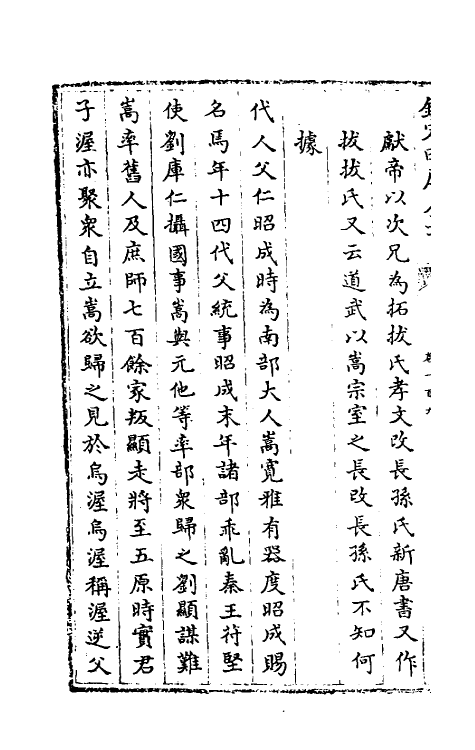 獻帝以次兄為拓拔氏孝文改長孫氏新唐書又作
拔拔氏又云道武以嵩宗室之長改長孫氏不知何
據
代人父仁昭成時為南部大人嵩寛雅有器度昭成賜
名焉年十四代父統事昭成末年諸部乖亂秦王苻堅
使劉庫仁攝國事嵩與元他等率部衆歸之劉顯謀難
嵩率舊人及庶師七百餘家叛顯走將至五原時寔君
子渥亦聚衆自立嵩欲歸之見於烏渥烏渥稱渥逆父